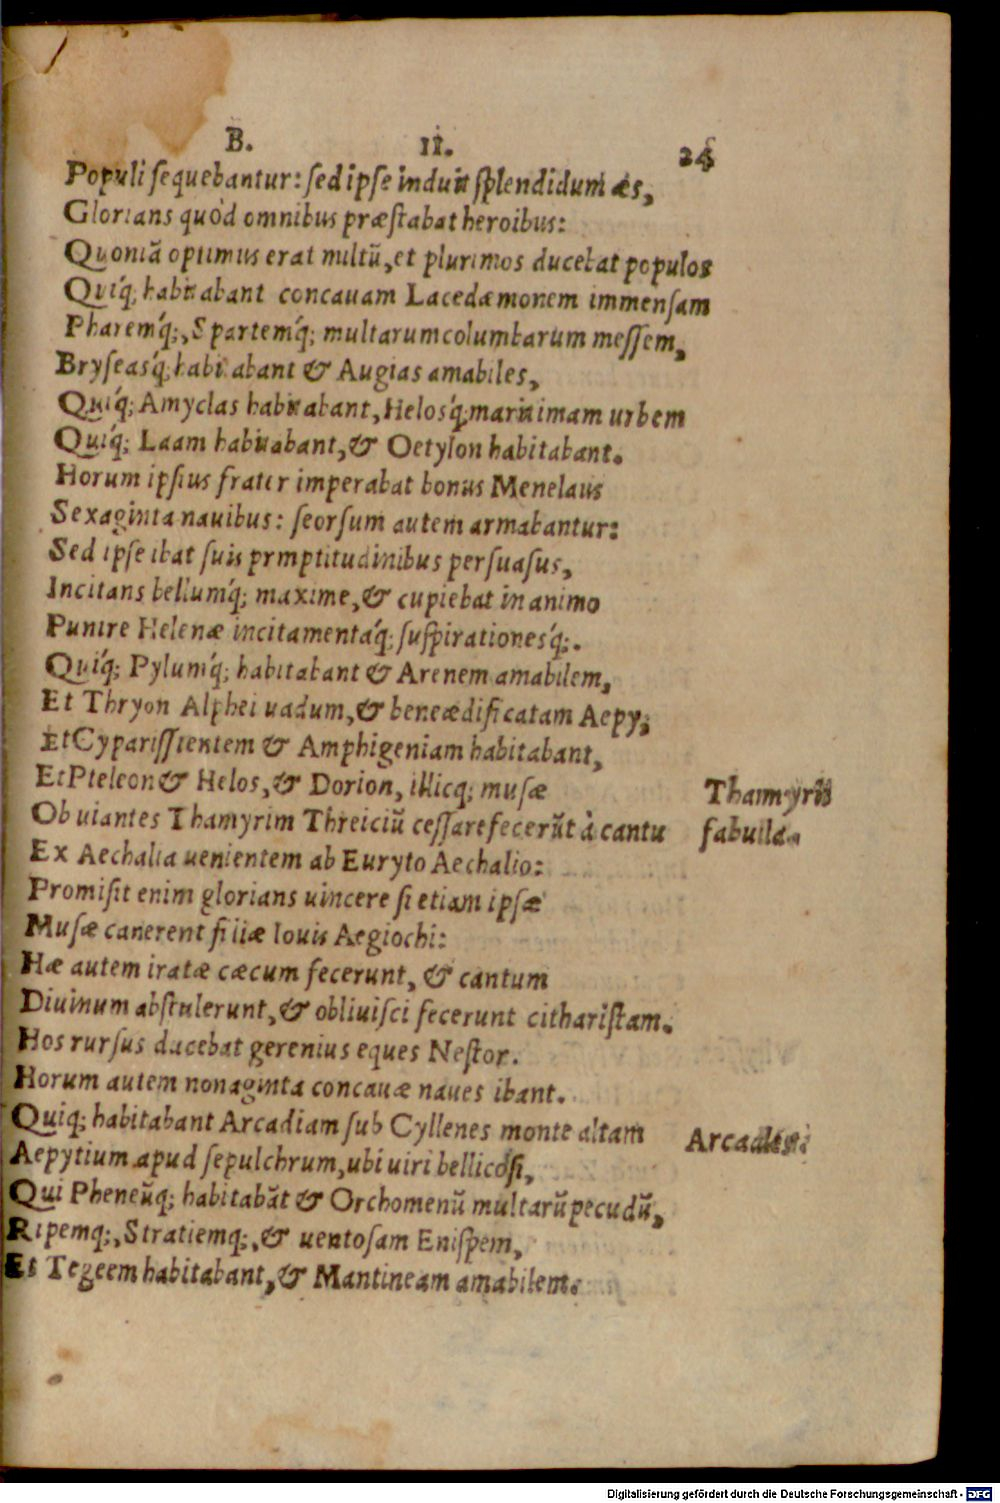 B. II. 24
Populi sequebantur: sed ipse induit splendidum æs,
Glorians quòd omnibus præstabat heroibus:
Quoniã optimus erat multũ, et plurimos ducebat populos
Quiq́; habitabant concauam Lacedæmonem immensam
Pharemq́;, Spartemq́; multarum columbarum messem,
Bryseasq́; habitabant & Augias amabiles,
Quiq́; Amyclas habitabant, Helosq́; maritimam urbem
Quiq́; Laam habitabant, & Oetylon habitabant.
Horum ipsius frater imperabat bonus Menelaus
Sexaginta nauibus: seorsum autem armabantur:
Sed ipse ibat suis prmptitudinibus persuasus,
Incitans bellumq́; maxime, & cupiebat in animo
Punire Helenæ incitamentaq́; suspirationesq́;.
Quiq́; Pylumq́; habitabant & Arenem amabilem,
Et Thryon Alphei uadum, & beneædificatam Aepy;
Et Cyparissientem & Amphigeniam habitabant,
Et Pteleon & Helos, & Dorion, illicq; musæ
Thamyris
Obuiantes Thamyrim Threiciũ cessare fecerũt à cantu
fabula.
Ex Aechalia uenientem ab Euryto Aechalio:
Promisit enim glorians uincere si etiam ipsæ
Musæ canerent filiæ Iouis Aegiochi:
Hæ autem iratæ cæcum fecerunt, & cantum
Diuinum abstulerunt, & obliuisci fecerunt citharistam.
Hos rursus ducebat gerenius eques Nestor.
Horum autem nonaginta concauæ naues ibant.
Quiq; habitabant Arcadiam sub Cyllenes monte altam
Arcades
Aepytium apud sepulchrum, ubi uiri bellicosi,
Qui Pheneũq; habitabãt & Orchomenũ multarũ pecudũ,
Ripemq;, Stratiemq;, & uentosam Enispem,
Et Tegeem habitabant, & Mantineam amabilem.
Digitalisierung gefördert durch die Deutsche Forschungsgemeinschaft - DFG